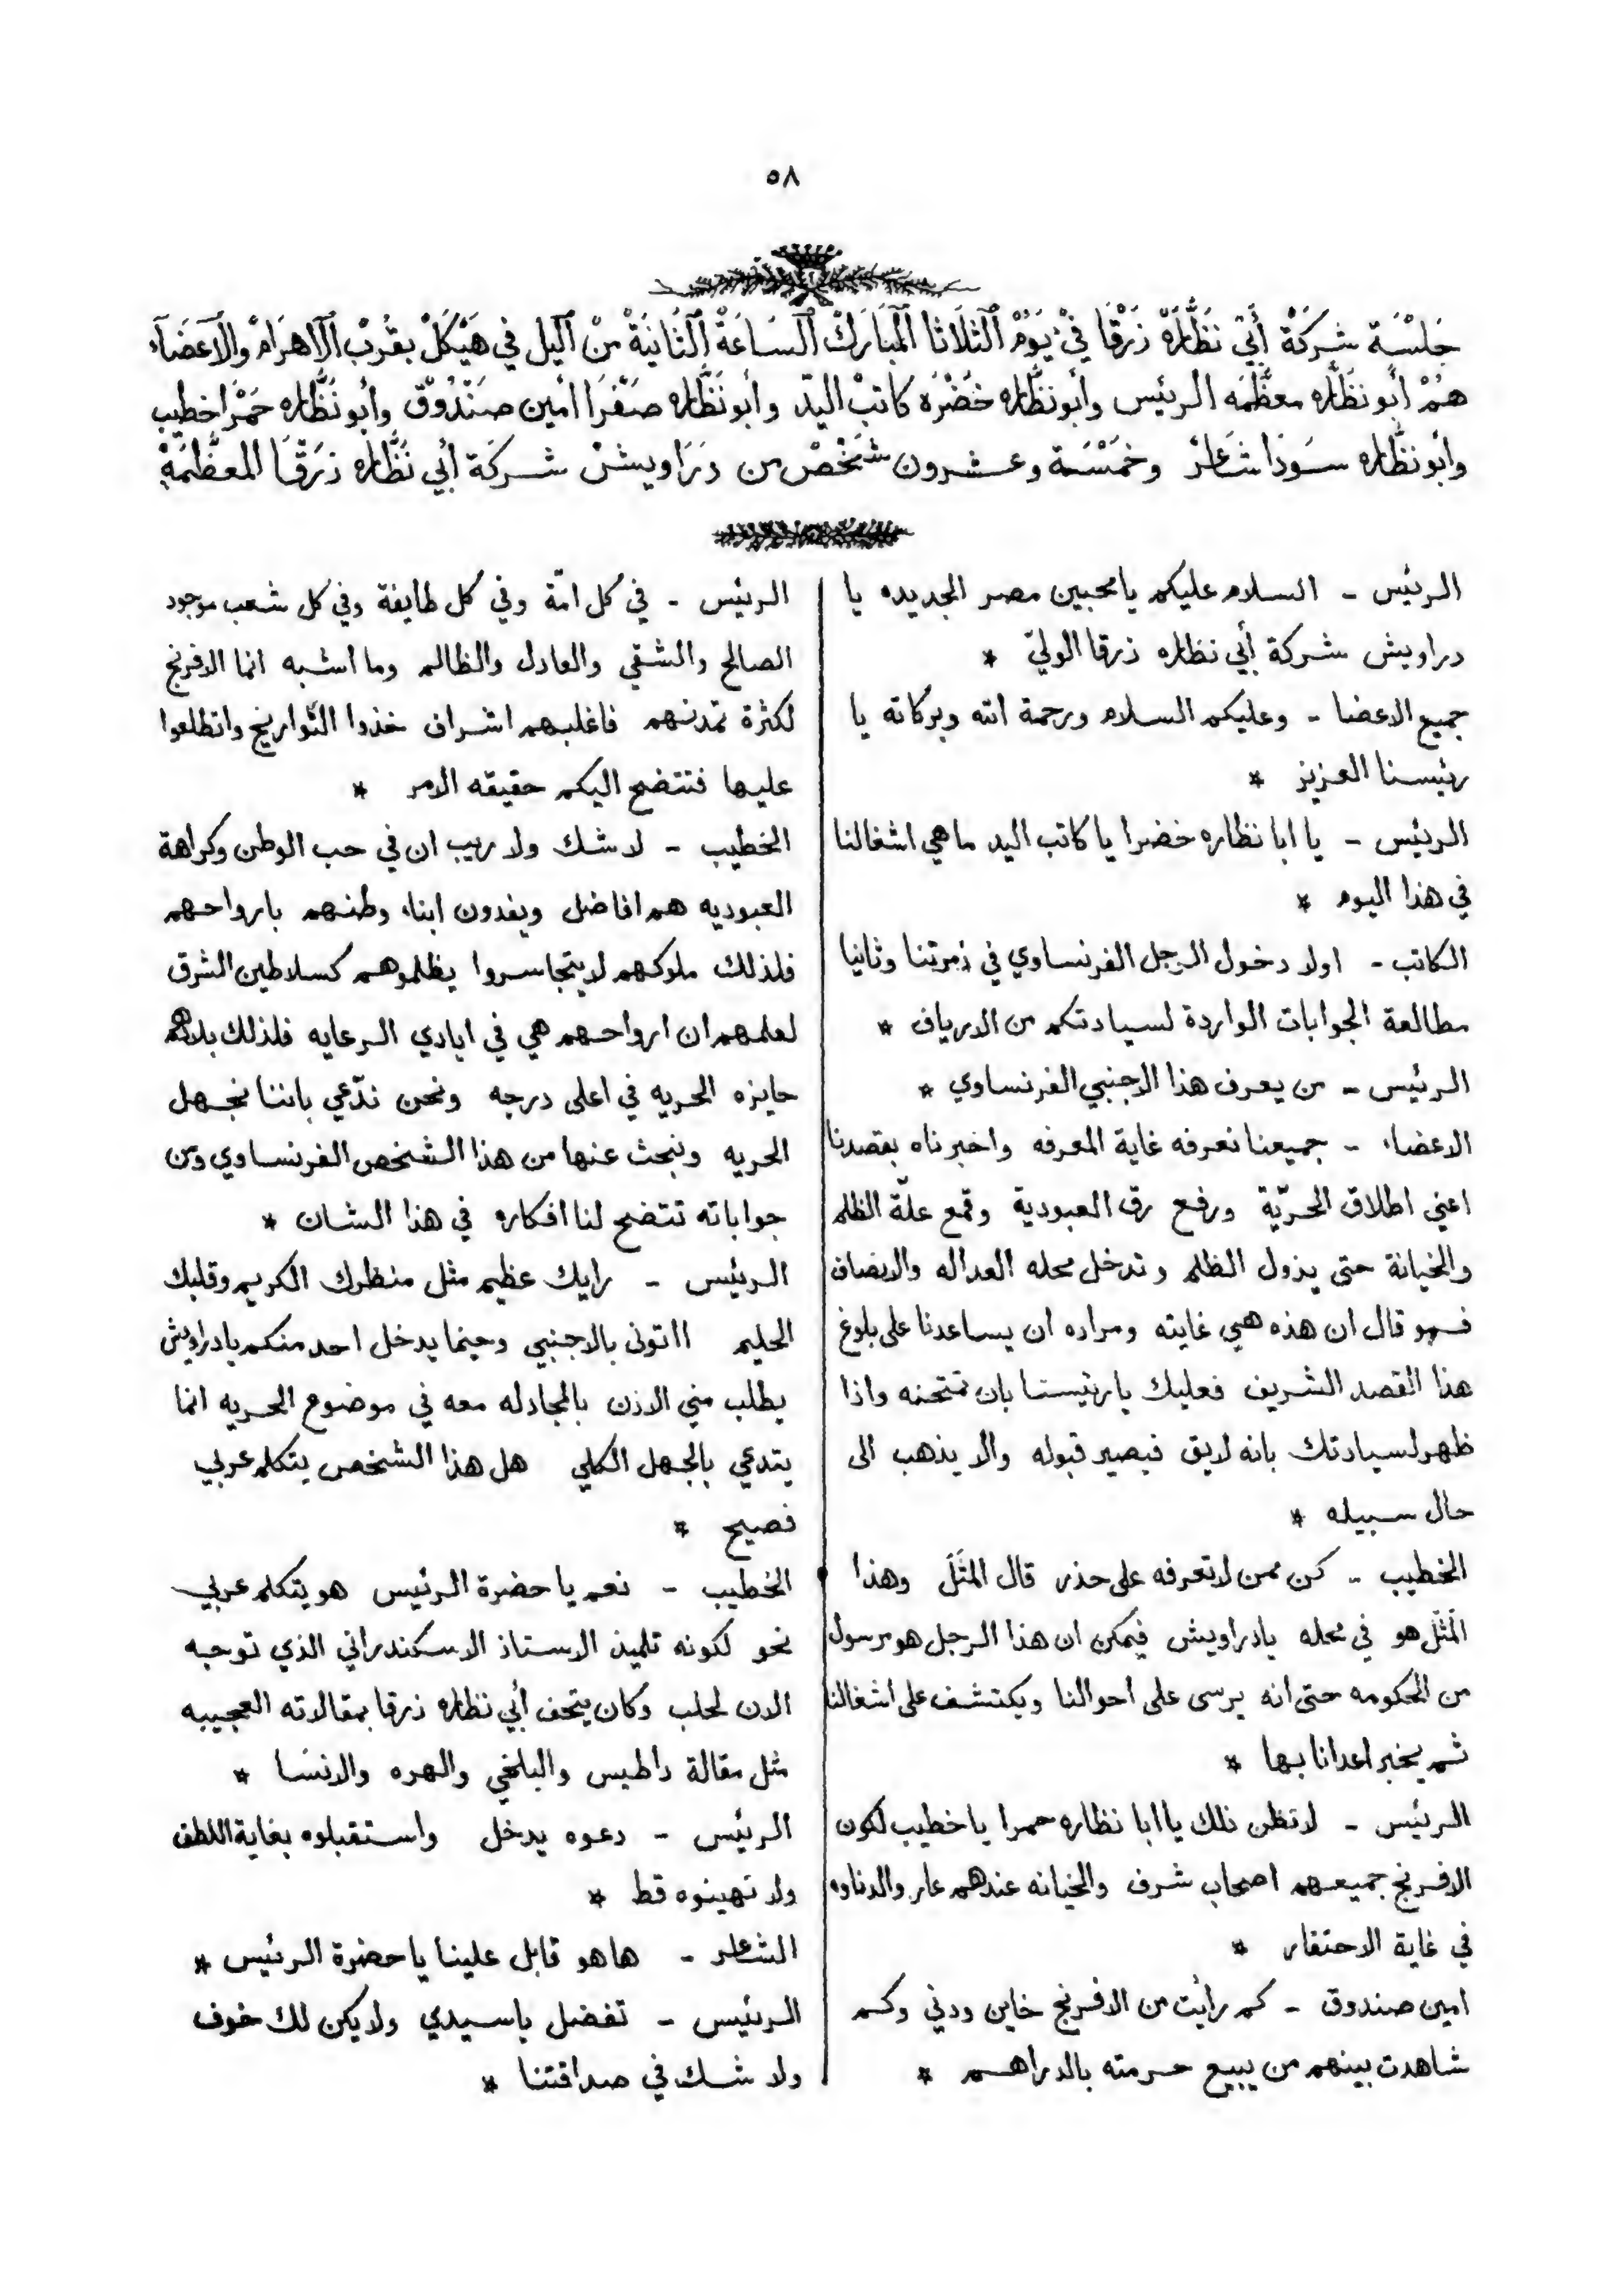 ٥٨
جَلْسَة شركَة أَبي نَظَّارَة زَرْقَا فيْ يَوْم الثلَاثا المْبَارَكْ السَاعَة الثَانيَة منْ اليل في هَيْكَلْ بقُربْ الاهرَام والاعضَآء
همْ أبو نظَّاره معظَّمَه الرئيس وأبونظَّاره خَضْرَه كاتبْ اليدّ وأبونَظَّاره صَفْرَا أمين صنْدُوقْ وأبو نَظَّاره حَمْرَا خطيب
وأبونظَّاره سَودَا شَاعرْ وخَمْسَة وعشرون شَخْصْ من دَرَاويشْ شركَة أبي نَظَّاره زرَقَا المعَظَّمَة
الرئيس - السلام عليكم يامحبين مصر الجديده يا
دراويش شركة أبي نظاره زرقا الوليّ *
جميع الاعضا - وعليكم السلام ورحمة الله وبركاته يا
رئيسنا العزيز *
الرئيس - يا ابا نظاره خضرا يا كاتب اليد ماهي اشغالنا
في هذا اليوم *
الكاتب - اولا دخول الرجل الفرنساوي في زمرتنا وثانيا
مطالعة الجوابات الواردة لسيادتكم من الارياف *
الرئيس - من يعرف هذا الاجنبي الفرنساوي *
الاعضاء - جميعنا نعرفه غاية المعرفه واخبرناه بقصدنا
اعني اطلاق الحريّة ورفع رق العبودية وقمع علّة الظلم
والخيانة حتى يزول الظلم وتدخل محله العداله والانصاف
فهو قال ان هذه هي غايته ومراده ان يساعدنا على بلوغ
هذا القصد الشريف فعليك يارئيسنا بان تمتحنه واذا
ظهر لسيادتك بانه لايق فيصير قبوله والا يذهب الى
حال سبيله *
الخطيب - كن ممن لاتعرفه على حذر قال المثَلَ وهذا
المَثَل هو في محله يادراويش فيمكن ان هذا الرجل هو مرسول
من الحكومه حتى انه يرسى على احوالنا ويكتشف على اشغالنا
ثم يخبر اعدانا بها *
الرئيس - لاتظن ذلك ياابا نظاره حمرا ياخطيب لكون
الافرنج جميعهم اصحاب شرف والخيانه عندهم عار والدناوه
في غاية الاحتقار *
امين صندوق - كم رأيت من الافرنج خاين ودني وكم
شاهدت بينهم من يبيع حرمته بالدراهم *
الرئيس - في كل امّة وفي كل طايفة وفي كل شعب موجود
الصالح والشقي والعادل والظالم وما اشبه انما الافرنج
لكثرة تمدنهم فاغلبهم اشراف خذوا التواريخ واتطلعوا
عليها فتتضح اليكم حقيقه الامر *
الخطيب - لاشك ولا ريب ان في حب الوطن وكراهة
العبوديه هم افاضل ويفدون ابناء وطنهم بارواحهم
فلذلك ملوكهم لايتجاسروا يظلموهم كسلاطين الشرق
لعلمهم ان ارواحهم هي في ايادي الرعايه فلذلك بلادهم
حايزه الحريه في اعلى درجه ونحن ندّعي باننا نجهل
الحريه ونبحث عنها من هذا الشخص الفرنساوي ومن
جواباته تتضح لنا افكاره في هذا الشان *
الرئيس - رايك عظيم مثل منظرك الكريم وقلبك
الحليم ااتونى بالاجنبي وحينما يدخل احد منكم يادراويش
يطلب مني الاذن بالمجادله معه في موضوع الحريه انما
يتدعي بالجهل الكلي هل هذا الشخص يتكلم عربي
فصيح *
الخطيب - نعم ياحضرة الرئيس هو يتكلم عربي
نحو لكونه تلميذ الاستاذ الاسكندراني الذي توجه
الان لحلب وكان يتحف أبي نظاره زرقا بمقالاته العجيبه
مثل مقالة داطيس والبلخي والهره والانسَا *
الرئيس - دعوه يدخل واستقبلوه بغاية اللطف
ولا تهينوه قط *
الشاعر - هاهو قابل علينا ياحضرة الرئيس *
الرئيس - تفضل ياسيدي ولايكن لك خوف
ولا شك في صداقتنا *